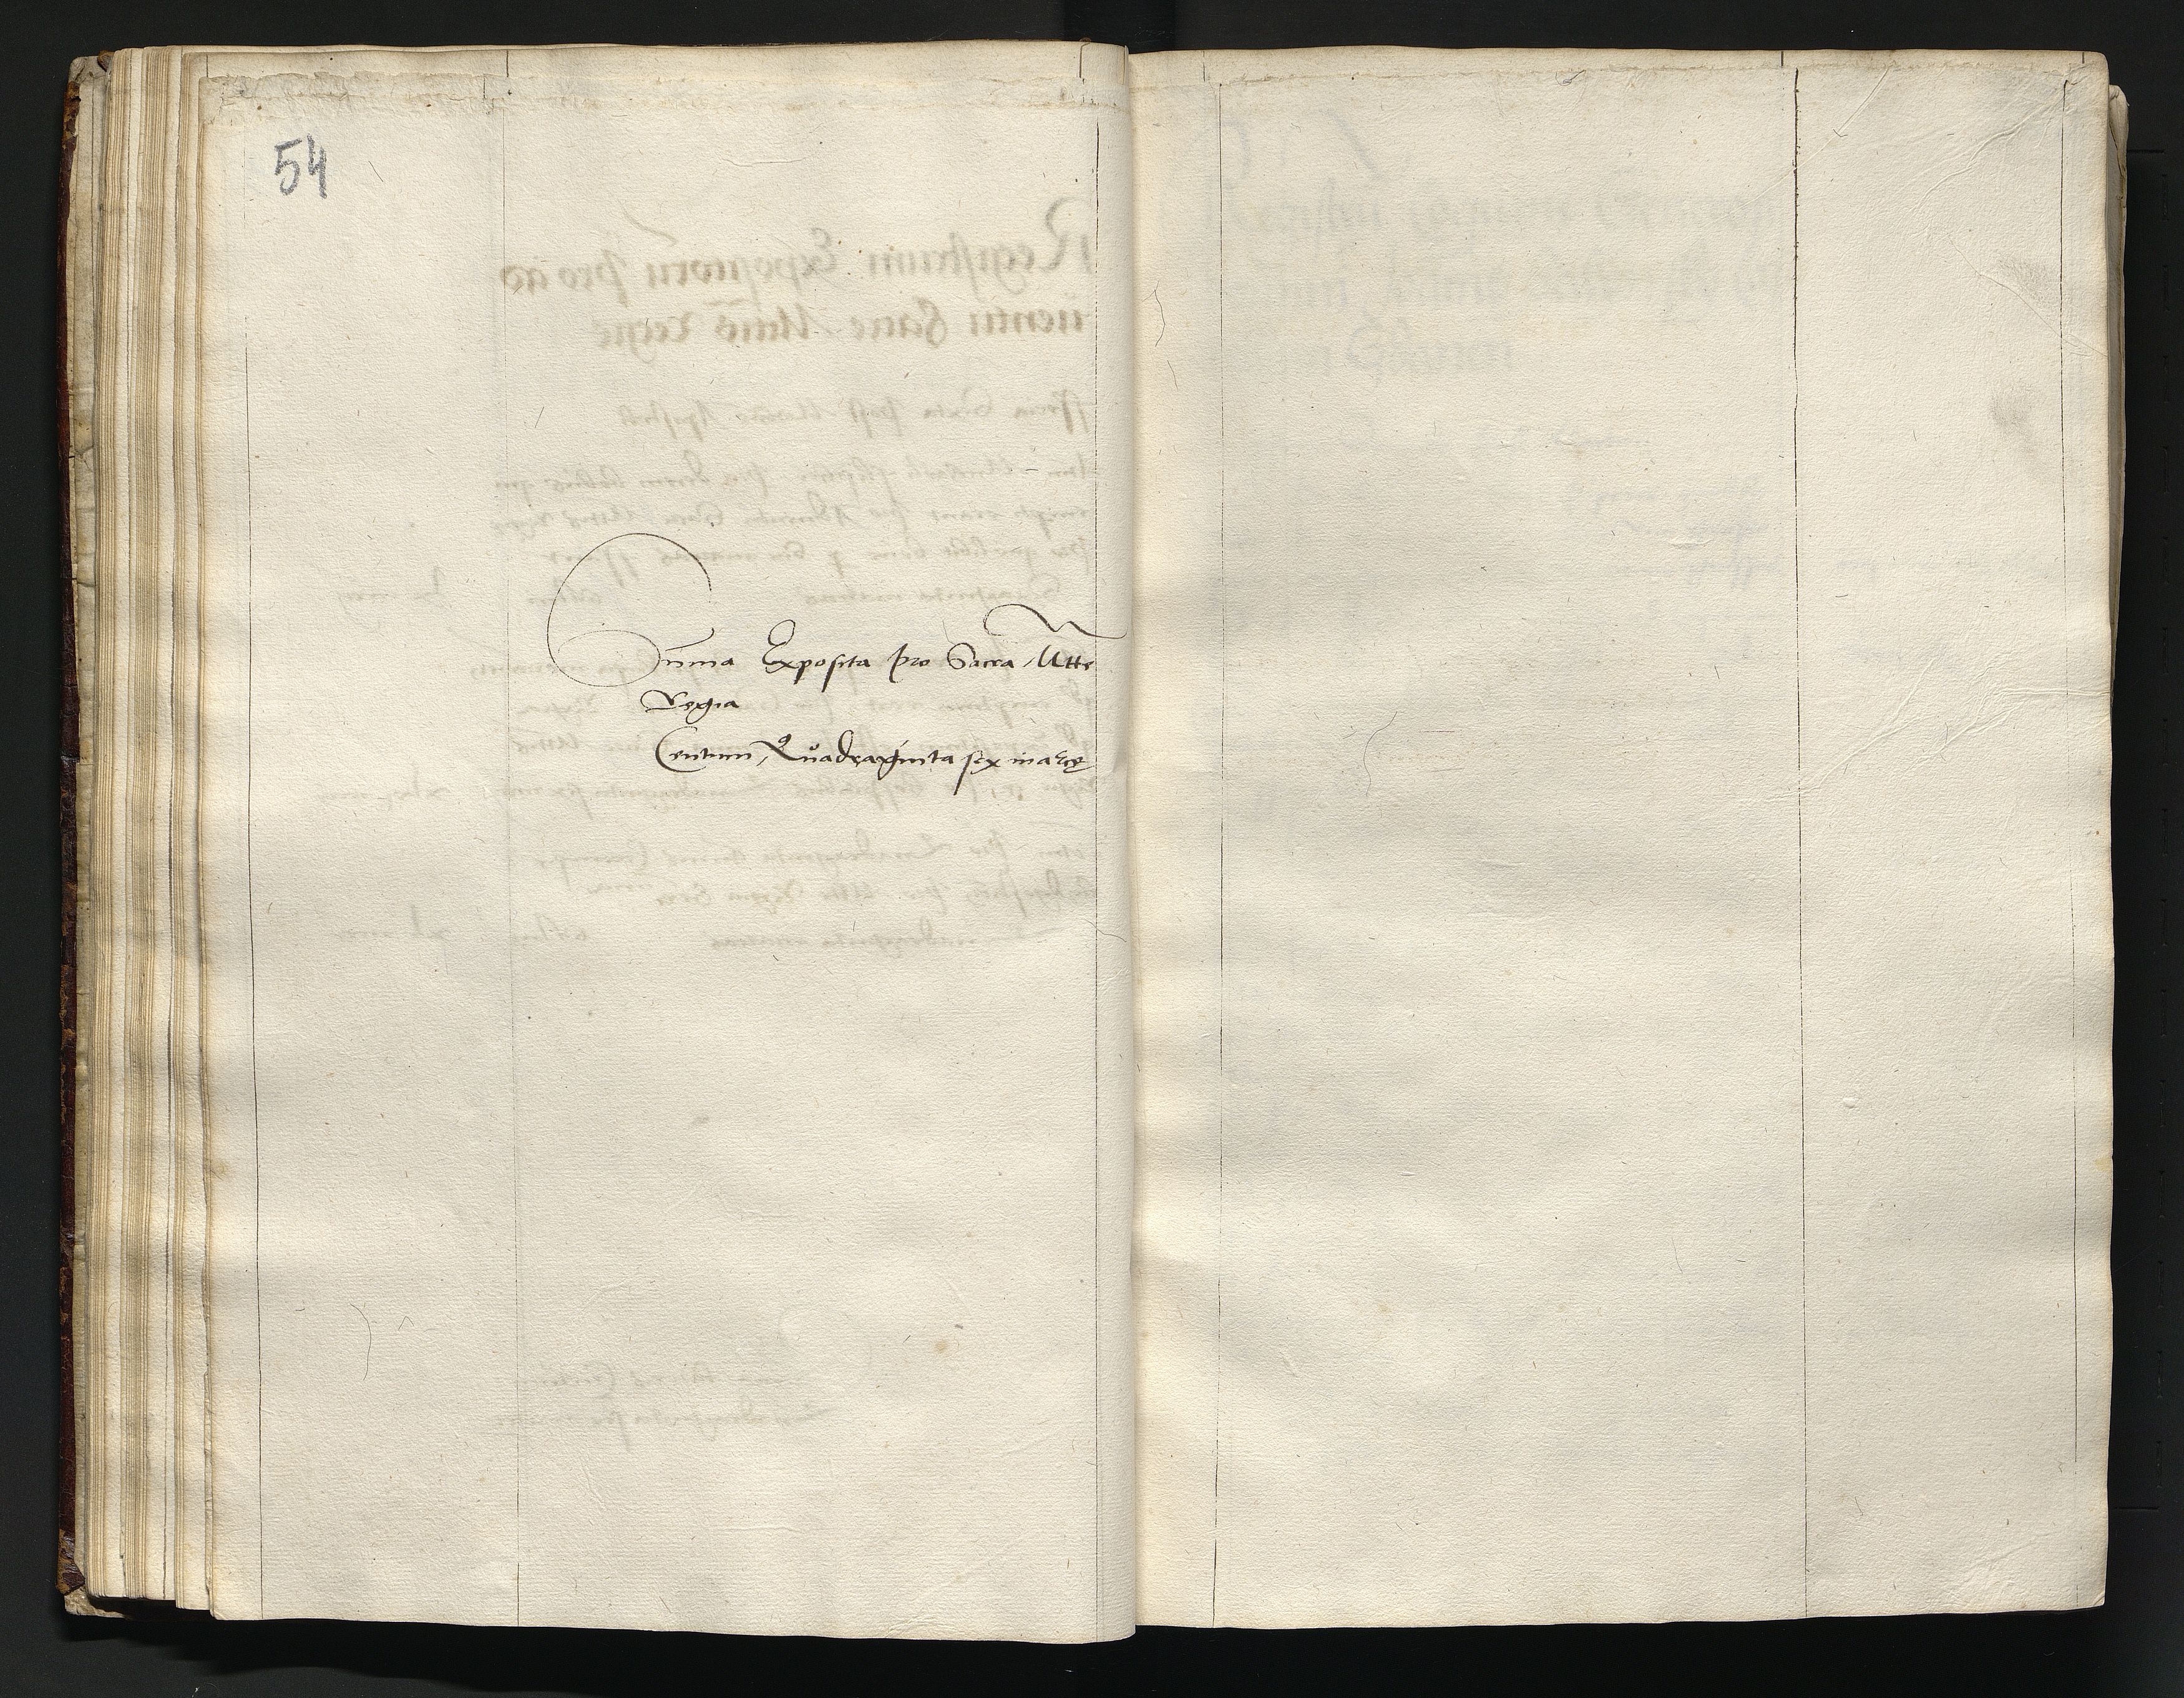 54
Suma Exposita pro Sacra Mtte
Regia
Centum Quadraginta sex marce